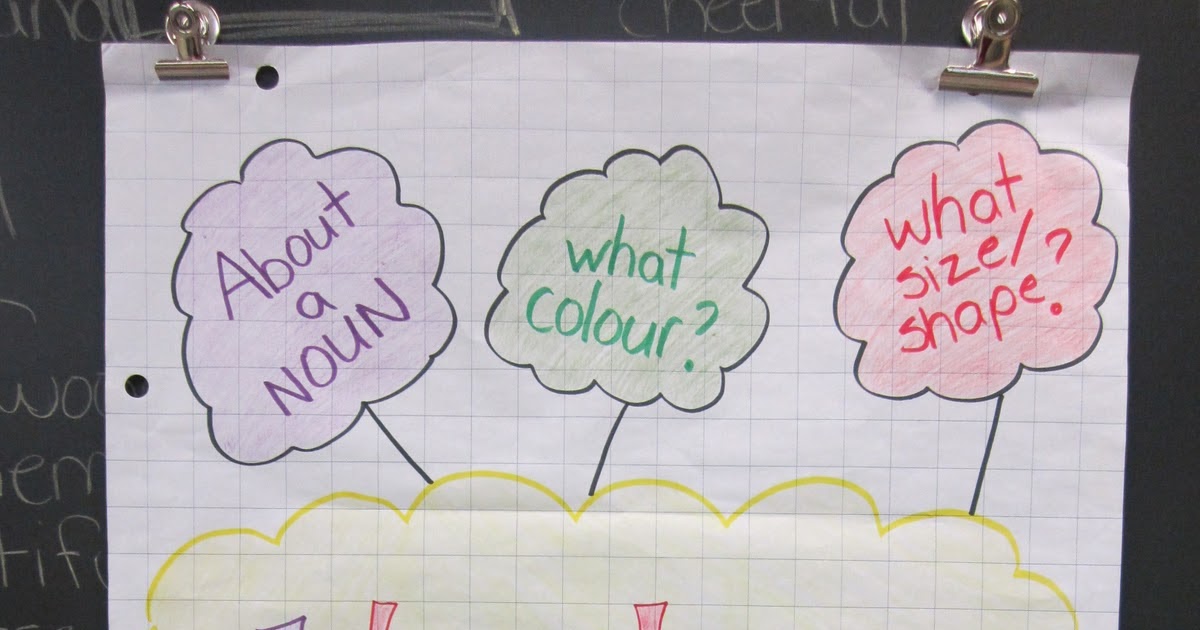 cheerful
About
a
NOUN
what
colour?
what
size/
shape?